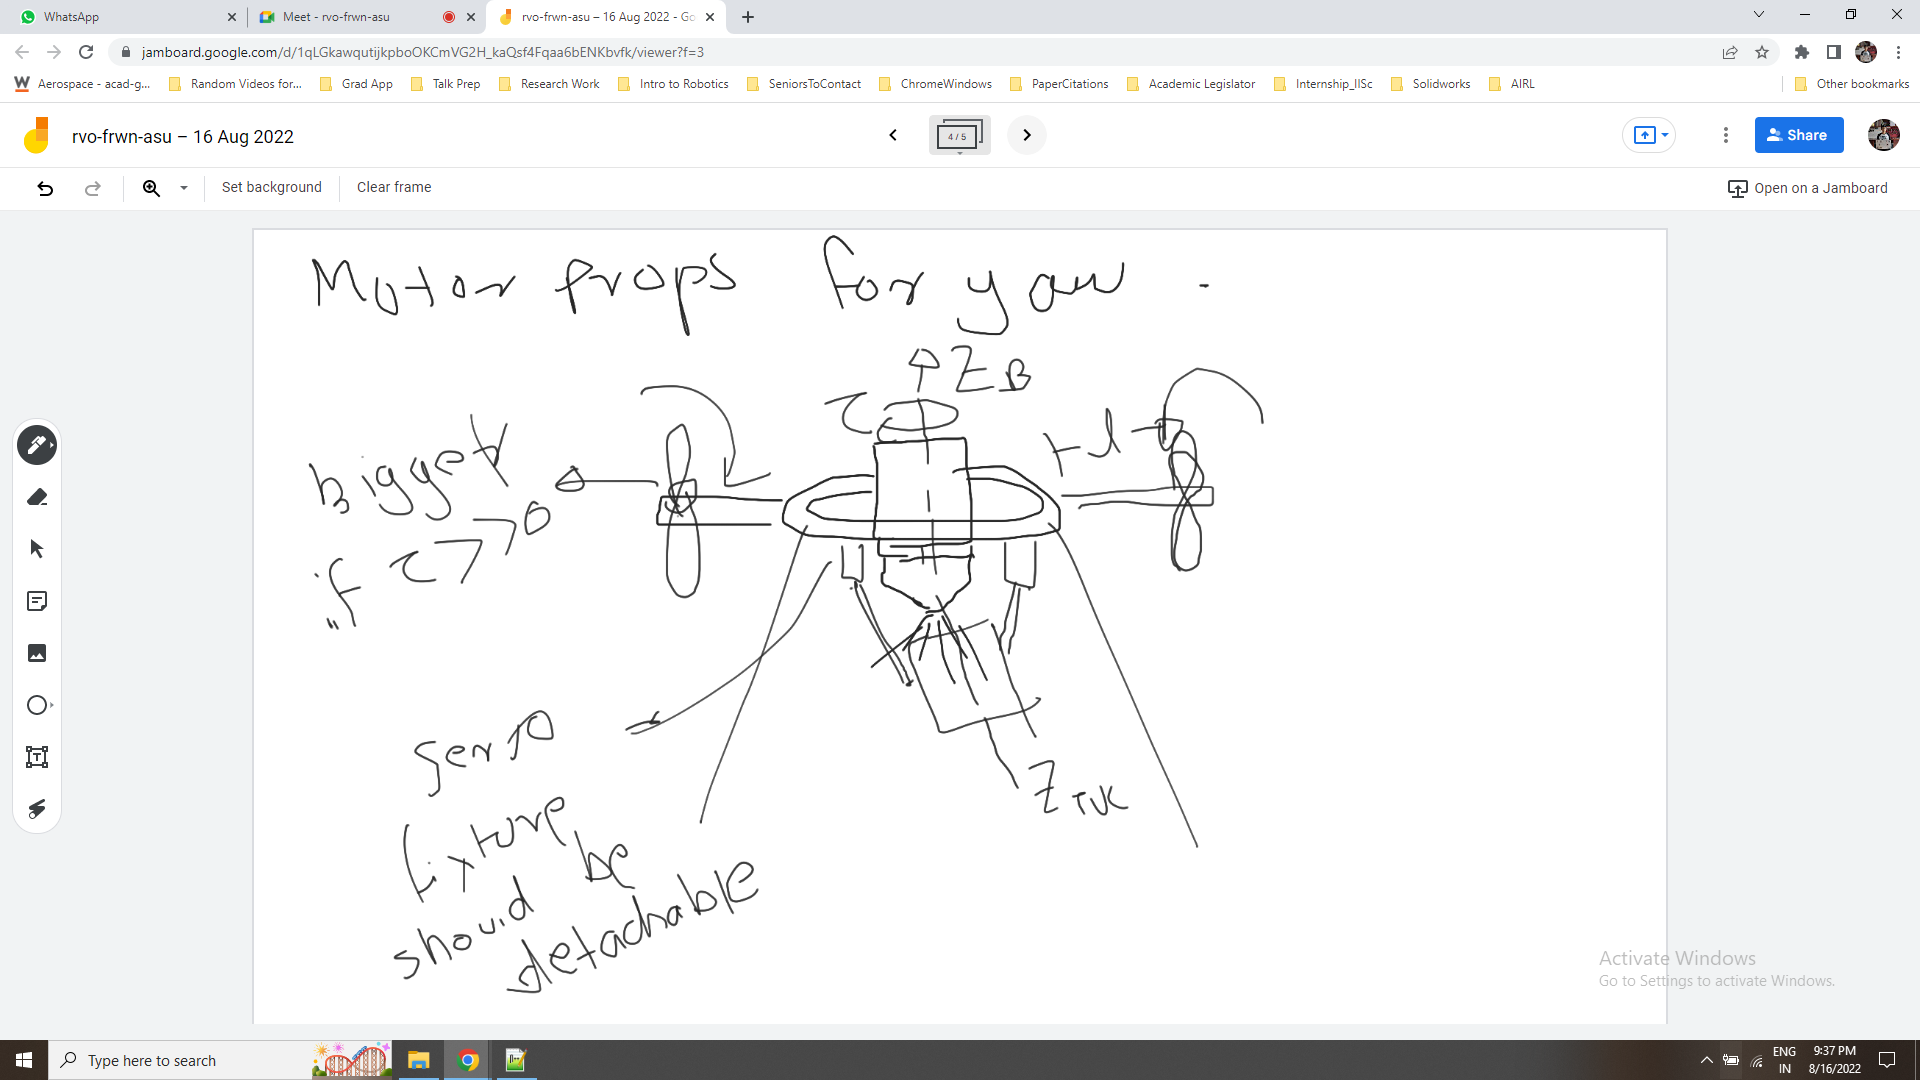 WhatsApp
Meet - rvo-frwn-asu
rvo-frwn-asu – 16 Aug 2022 - Go
jamboard.google.com/d/1qLGkawqutijkpboOKCmVG2H_kaQsf4Fqaa6bENKbvfk/viewer?f=3
Aerospace - acad-g... Random Videos for... Grad App Talk Prep Research Work Intro to Robotics SeniorsToContact ChromeWindows PaperCitations Academic Legislator Internship_IISc Solidworks AIRL Other bookmarks
rvo-frwn-asu – 16 Aug 2022
4 / 5
Share
Set background
Clear frame
Open on a Jamboard
Motor props for yaw .
Z B
τ
bigger
if τ >> 0
servo
Z TVC
fixture
should be
detachable
Activate Windows
Go to Settings to activate Windows.
Type here to search
ENG
IN
9:37 PM
8/16/2022